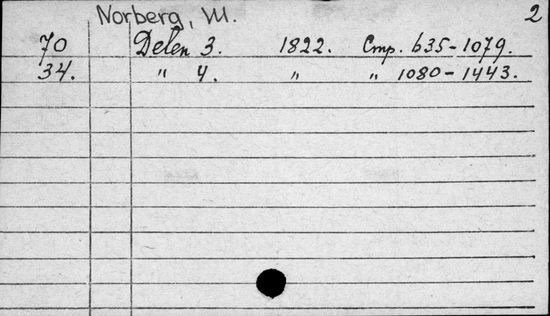 Norberg, M. 2
70 Delen 3. 1822. Стр. 635-1079.
34. " 4. " " 1080-1443.